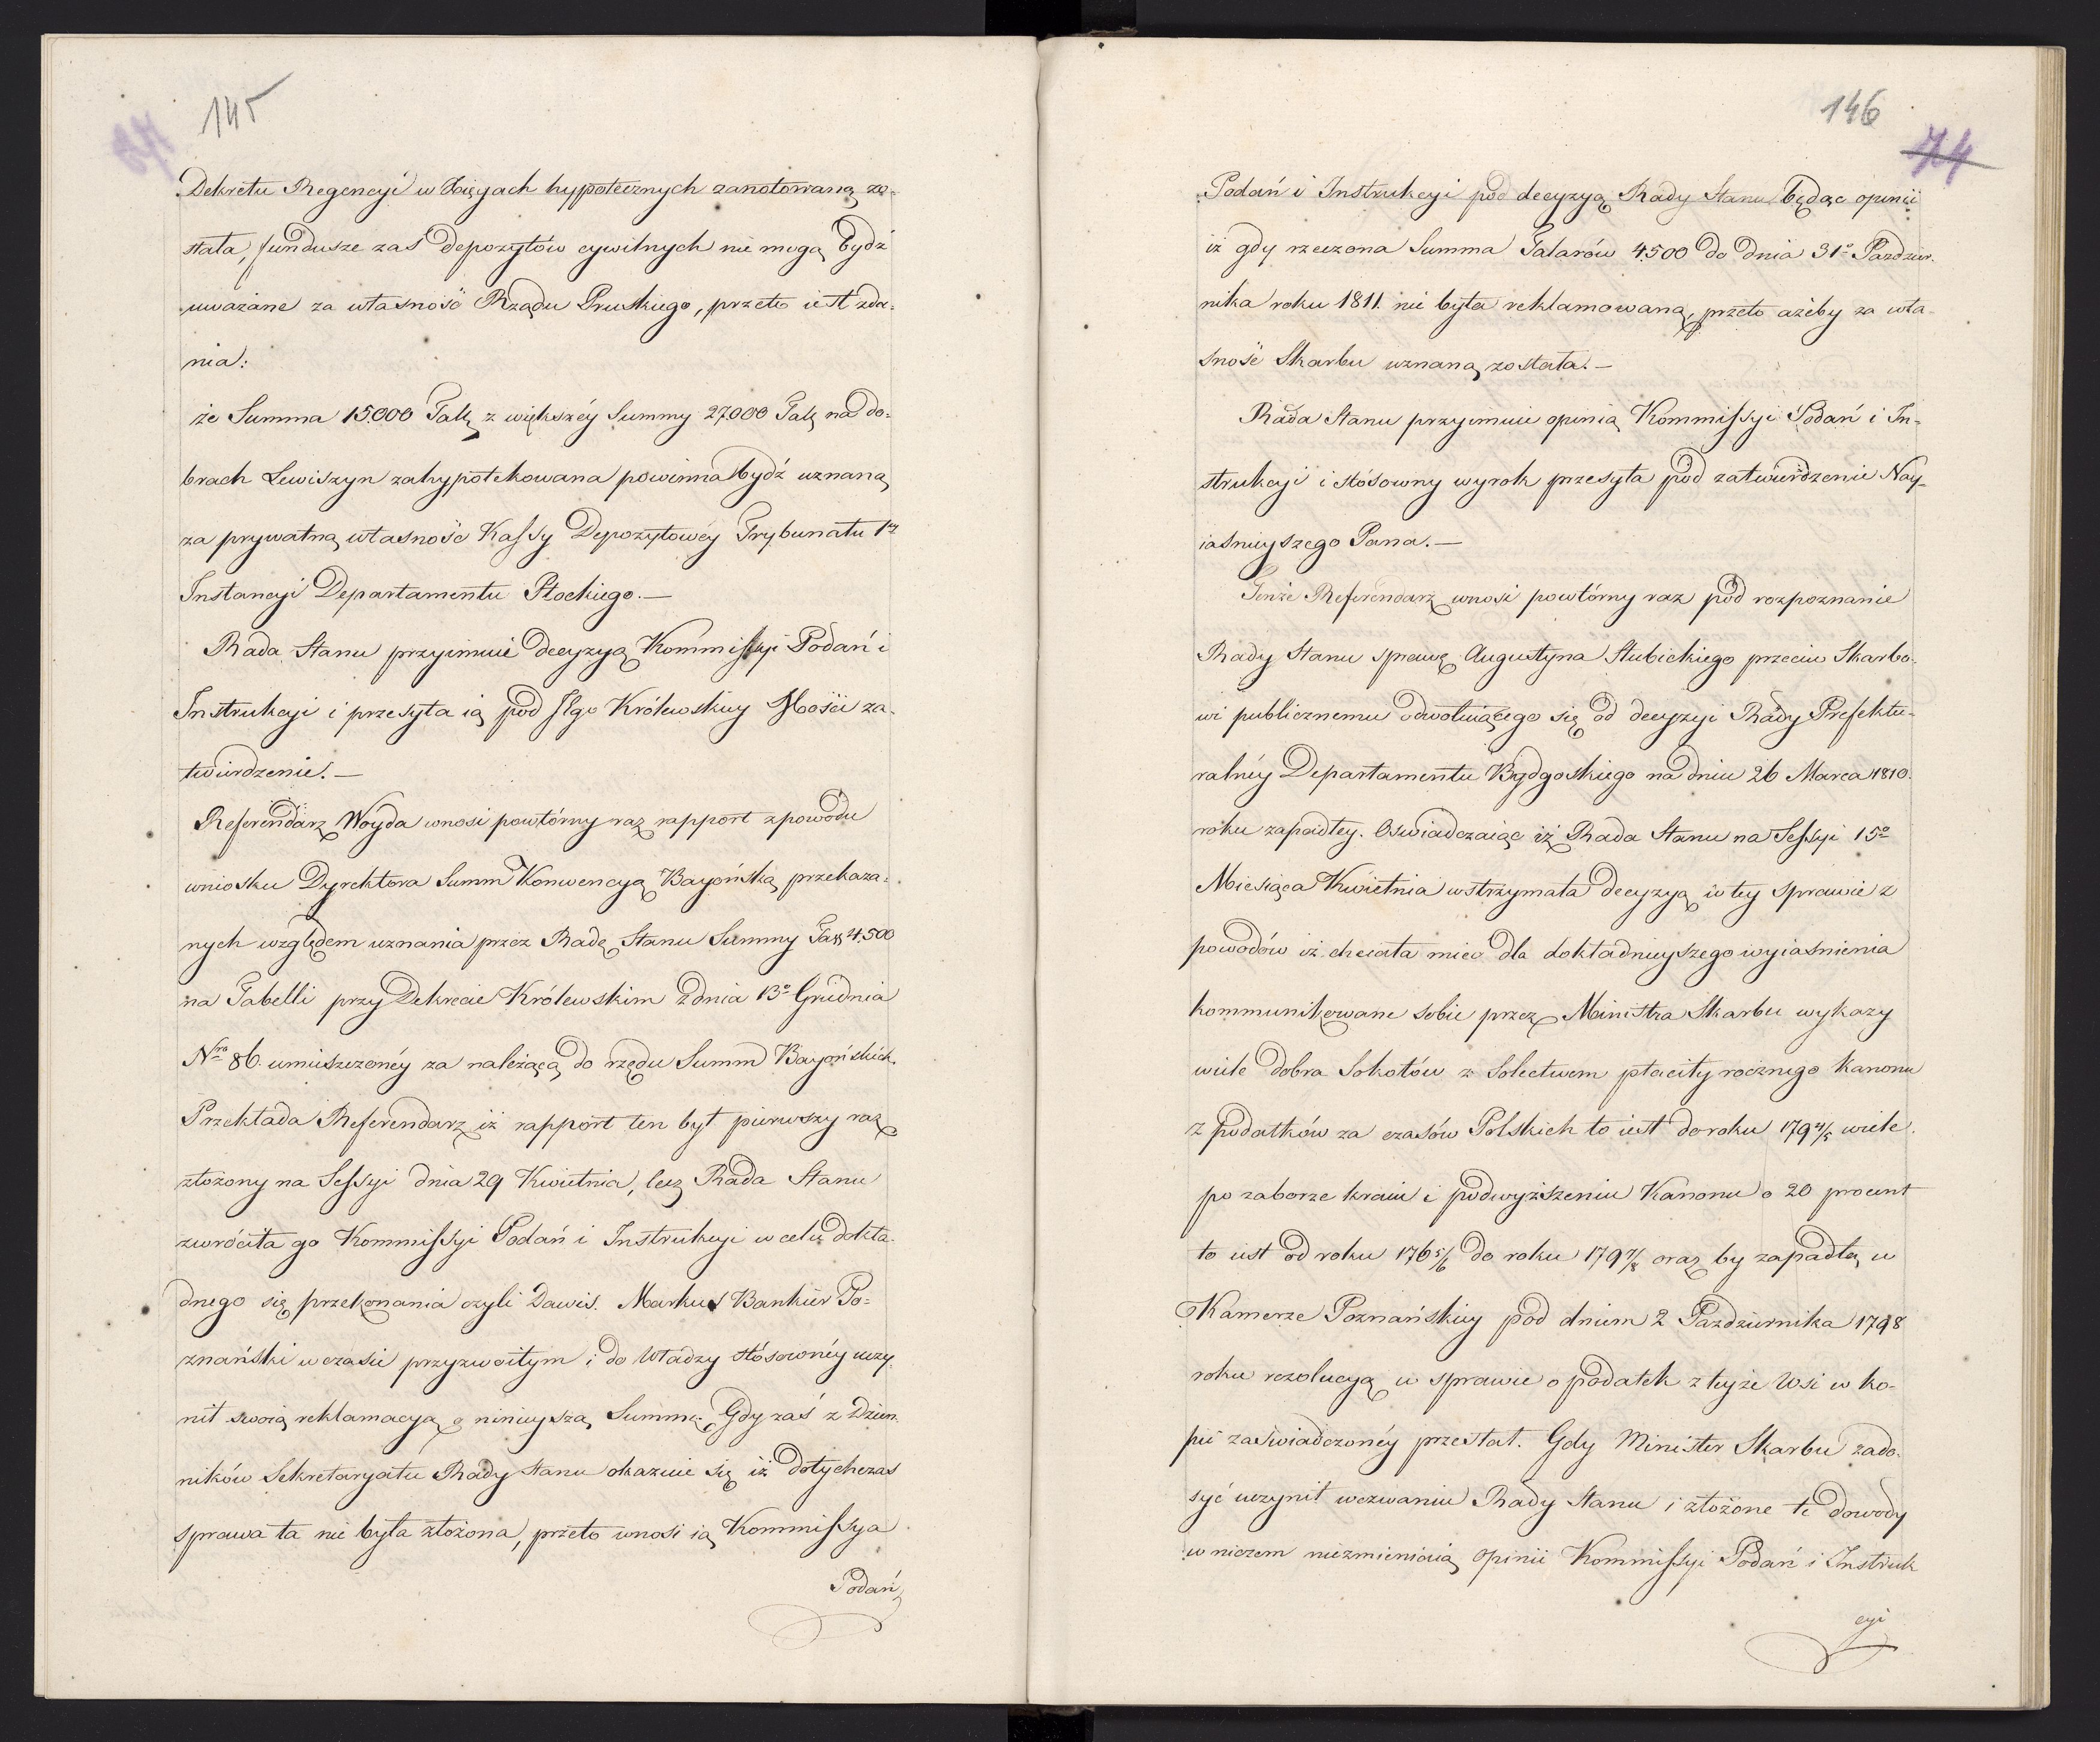 145
Dekretu Regencyi w Xięgach hypotecznych zanotowaną zo-
stała, fundusze zaś Depozytów cywilnych nie mogą bydź
uważane za własność Rządu Pruskiego, przeto iest zda-
nia:
że Summa 15.000 Tal: z większéy Summy 27.000 Tal: na do-
brach Lewiszyn zahypotekowana powinna bydź uznaną
za prywatną własność Kassy Depozytowéy Trybunału 1éy
Instancyi Departamentu Płockiego.—
Rada Stanu przyimuie decyzyą Kommissyi Podań i
Instrukcyi i przesyła ią pod Jego Królewskiey Mości za-
twierdzenie.—
Referendarz Woyda wnosi powtórny raz rapport z powodu
wniosku Dyrektora Summ Konwencyą Bayońską przekaza-
nych względem uznania przez Radę Stanu Summy Tal: 4.500
na Tabelli przy Dekrecie Królewskim z dnia 13o Grudnia
Nro 86. umieszczonéy za należącą do rzędu Summ Bayońskich.
Przekłada Referendarz iż rapport ten był pierwszy raz
złożony na Sessyi dnia 29 Kwietnia, lecz Rada Stanu
zwróciła go Kommissyi Podań i Instrukcyi w celu dokła-
dnego się przekonania czyli Dawis. Markus Bankier Po-
znański w czasie przyzwoitym i do Władzy stósownéy uczy-
nił swoią reklamacyą o ninieyszą Summę. Gdy zaś z Dzien-
ników Sekretaryatu Rady Stanu okazuie się iż dotychczas
sprawa ta nie była złożona, przeto wnosi ią Kommissya
Podań
146
74
Podań i Instrukcyi pod decyzyą Rady Stanu będąc opinii
iż gdy rzeczona Summa Talarów 4.500 do dnia 31o Paździer-
nika roku 1811. nie była reklamowaną, przeto ażeby za wła-
sność Skarbu uznaną została.—
Rada Stanu przyimuie opinią Kommissyi Podań i In-
strukcyi i stósowny wyrok przesyła pod zatwierdzenie Nay-
iaśnieyszego Pana.—
Tenże Referendarz wnosi powtórny raz pod rozpoznanie
Rady Stanu sprawę Augustyna Słubickiego przeciw Skarbo-
wi publicznemu odwołuiącego się od decyzyi Rady Prefektu-
ralnéy Departamentu Bydgoskiego na dniu 26 Marca 1810.
roku zapadłey. Oświadczaiąc iż Rada Stanu na Sessyi 15o
Miesiąca Kwietnia wstrzymała decyzyą w tey sprawie z
powodów iż chciała mieć dla dokładnieyszego wyiaśnienia
kommunikowane sobie przez Ministra Skarbu wykazy
wiele dobra Sokołów z Sołectwem płaciły rocznego Kanonu
z podatków za czasów Polskich to iest do roku 179 4/5 wiele
po zaborze kraiu i podwyższeniu Kanonu o 20 procent
to iest od roku 176 5/6 do roku 179 7/8 oraz by zapadłą w
Kamerze Poznańskiey pod dniem 2 Października 1798
roku rezolucyą w sprawie o podatek z teyże Wsi w ko-
pii zaświadczonéy przesłał. Gdy Minister Skarbu zado-
syć uczynił wezwaniu Rady Stanu i złożone te dowody
w niczem niezmieniaią opinii Kommissyi Podań i Instruk
cyi